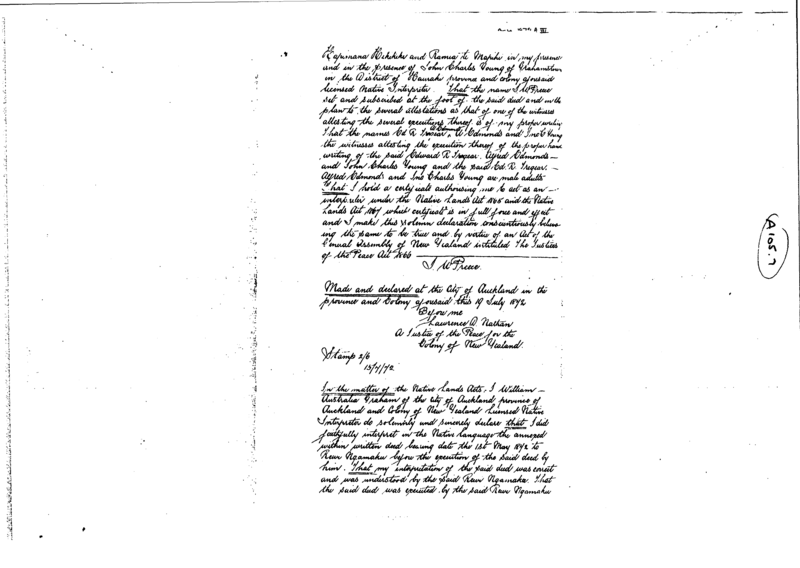 Hapimana Hikihiki and Ramia te Mapihi in my presence
and in the presence of John Charles Young of Grahamstown
in the District of Hauraki province and colony aforesaid
licensed Native Interpreter. That the name J W Preece
set and subscribed at the foot of the said deed and on the
plan to the several attestations as that of one of the witnesses
attesting the several executions thereof is of my proper writing
That the names Ed R Tregear, A Edmonds and Jno C Young
the witnesses attesting the execution thereof of the proper hand
writing of the said Edward R Tregear. Alfred Edmonds —
and John Charles Young and the said Ed. R. Tregear. —
Alfred Edmonds and Jno Charles Young are male adults
That I hold a certificate authorising me to act as an —
interpreter under the Native Lands Act 1865 and the Native
Lands Act 1867 which certificate is in full force and effect
and I make this solemn declaration conscientiously believ
ing the same to be true and by virtue of an Act of the
General Assembly of New Zealand intituled The Justices
of the Peace Act 1866
J W Preece.
Made and declared at the City of Auckland in the
province and Colony aforesaid this 19 July 1872
Before me
Lawrence D. Nathan
A Justice of the Peace for the
Colony of New Zealand.
Stamp 2/6
15/7/72
In the matter of the Native Lands Acts, I William —
Australia Graham of the City of Auckland province of
Auckland and Colony of New Zealand Licensed Native
Interpreter do solemnly and sincerely declare that I did
faithfully interpret in the Native language the annexed
within written deed bearing date the 1st May 1872 to
Rewi Ngamaku before the execution of the said deed by
him. That my interpretation of the said deed was correct
and was understood by the said Rewi Ngamaku. That
the said deed was executed by the said Rewi Ngamaku
A105.7